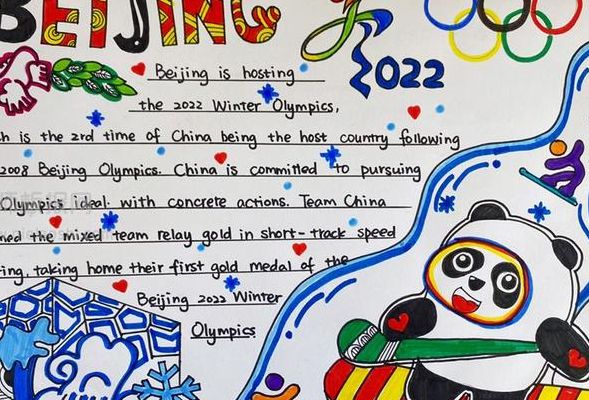 BEIJING
2022
Beijing is hosting
the 2022 Winter Olympics,
is the 2rd time of China being the host country following
2008 Beijing Olympics. China is committed to pursuing
Olympics ideal. with concrete actions. Team China
the mixed team relay gold in short-track speed
taking home their first gold medal of the
Beijing 2022 Winter
Olympics